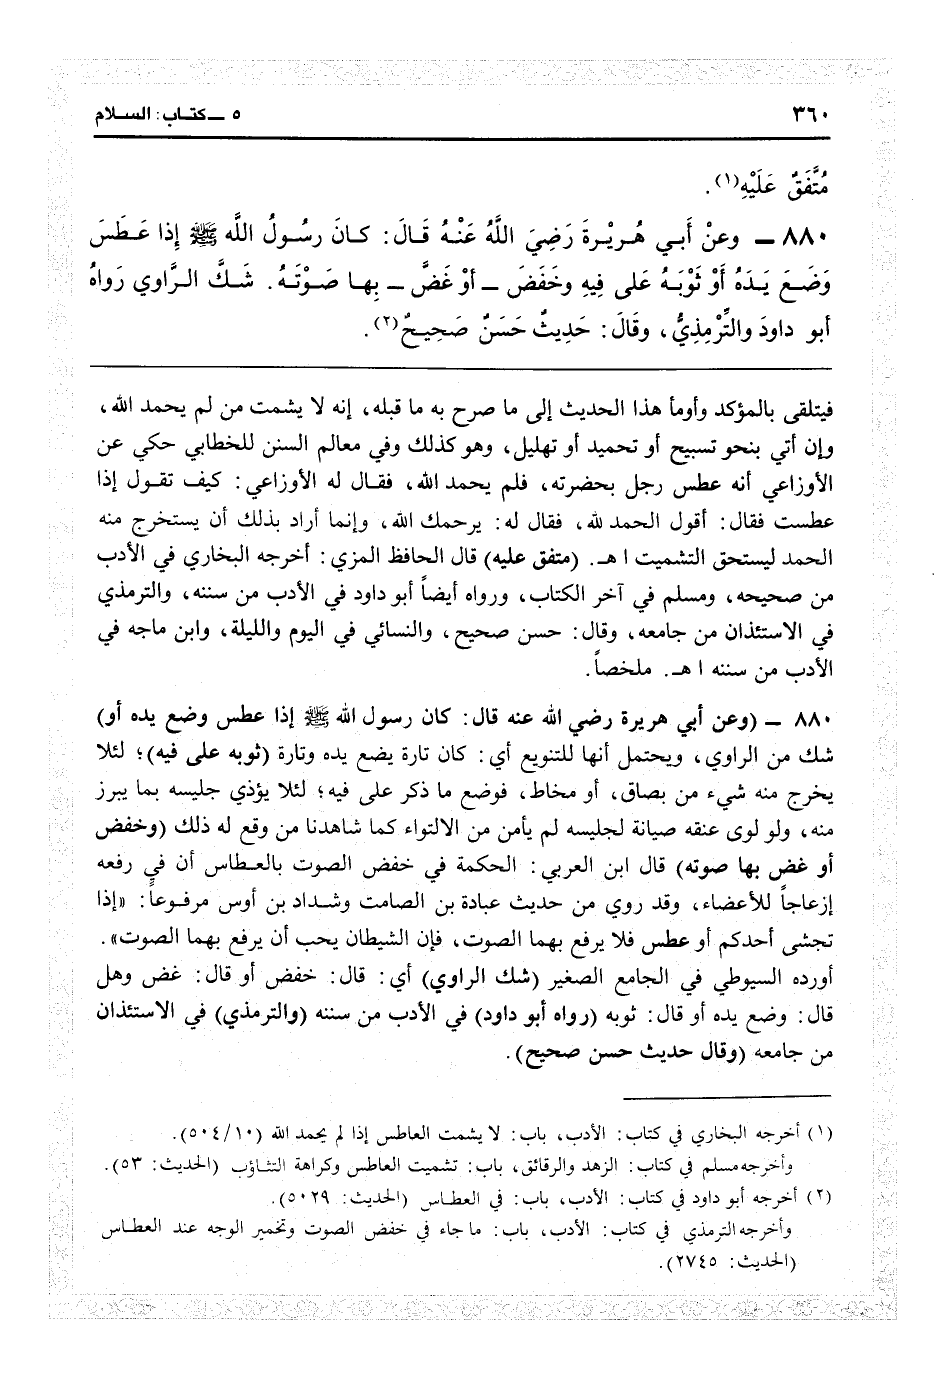 ٣٦٠
٥ ــ كتـاب: السـلام
مُتَّفَقٌ عَلَيْهِ(١).
٨٨٠ ــ وعنْ أَبـي هُـريْـرةَ رَضِيَ اللَّهُ عَنْـهُ قَـالَ: كـانَ رسُـولُ اللَّه ﷺ إِذا عَـطَسَ
وَضَـعَ يَـدَهُ أَوْ ثَوْبَـهُ عَلى فِيهِ وخَفَضَ ــ أَوْ غَضَّ ــ بِهـا صَـوْتَـهُ. شَـكَّ الـرَّاوي رَواهُ
أبو داودَ والتِّرْمِذِيُّ، وقَالَ: حَدِيثٌ حَسَنٌ صَحِيـحٌ(٢).
فيتلقى بالمؤكد وأومأ هذا الحديث إلى ما صرح به ما قبله، إنه لا يشمت من لم يحمد الله،
وإن أتي بنحو تسبيح أو تحميد أو تهليل، وهو كذلك وفي معالم السنن للخطابي حكي عن
الأوزاعي أنه عطس رجل بحضرته، فلم يحمد الله، فقـال له الأوزاعي: كيف تقـول إذا
عطست فقال: أقول الحمد لله، فقال له: يرحمك الله، وإنما أراد بذلك أن يستخرج منه
الحمد ليستحق التشميت ا هـ. (متفق عليه) قال الحافظ المزي: أخرجه البخاري في الأدب
من صحيحه، ومسلم في آخر الكتاب، ورواه أيضاً أبو داود في الأدب من سننه، والترمذي
في الاستئذان من جامعه، وقال: حسن صحيح، والنسائي في اليوم والليلة، وابن ماجه في
الأدب من سننه ا هـ. ملخصاً.
٨٨٠ ــ (وعن أبي هريرة رضي الله عنه قال: كان رسول الله ﷺ إذا عطس وضع يده أو)
شك من الراوي، ويحتمل أنها للتنويع أي: كان تارة يضع يده وتارة (ثوبه على فيه)؛ لئلا
يخرج منه شيء من بصاق، أو مخاط، فوضع ما ذكر على فيه؛ لئلا يؤذي جليسه بما يبرز
منه، ولو لوى عنقه صيانة لجليسه لم يأمن من الالتواء كما شاهدنا من وقع له ذلك (وخفض
أو غض بها صوته) قال ابن العربي: الحكمة في خفض الصوت بالعـطاس أن في رفعه
إزعاجاً للأعضاء، وقد روي من حديث عبادة بن الصامت وشـداد بن أوس مرفـوعاً: «إذا
تجشى أحدكم أو عطس فلا يرفع بهما الصوت، فإن الشيطان يحب أن يرفع بهما الصوت».
أورده السيوطي في الجامع الصغير (شك الراوي) أي: قال: خفض أو قال: غض وهل
قال: وضع يده أو قال: ثوبه (رواه أبو داود) في الأدب من سننه (والترمذي) في الاستئذان
من جامعه (وقال حديث حسن صحيح).
(١) أخرجه البخاري في كتاب: الأدب، باب: لا يشمت العاطس إذا لم يحمد الله (٥٠٤/١٠).
وأخرجه مسلم في كتاب: الزهد والرقائق، باب: تشميت العاطس وكراهة التثـاؤب (الحديث: ٥٣).
(٢) أخرجه أبو داود في كتاب: الأدب، باب: في العطـاس (الحديث: ٥٠٢٩).
وأخرجه الترمذي في كتاب: الأدب، باب: ما جاء في خفض الصوت وتخمير الوجه عند العطـاس
(الحديث: ٢٧٤٥).